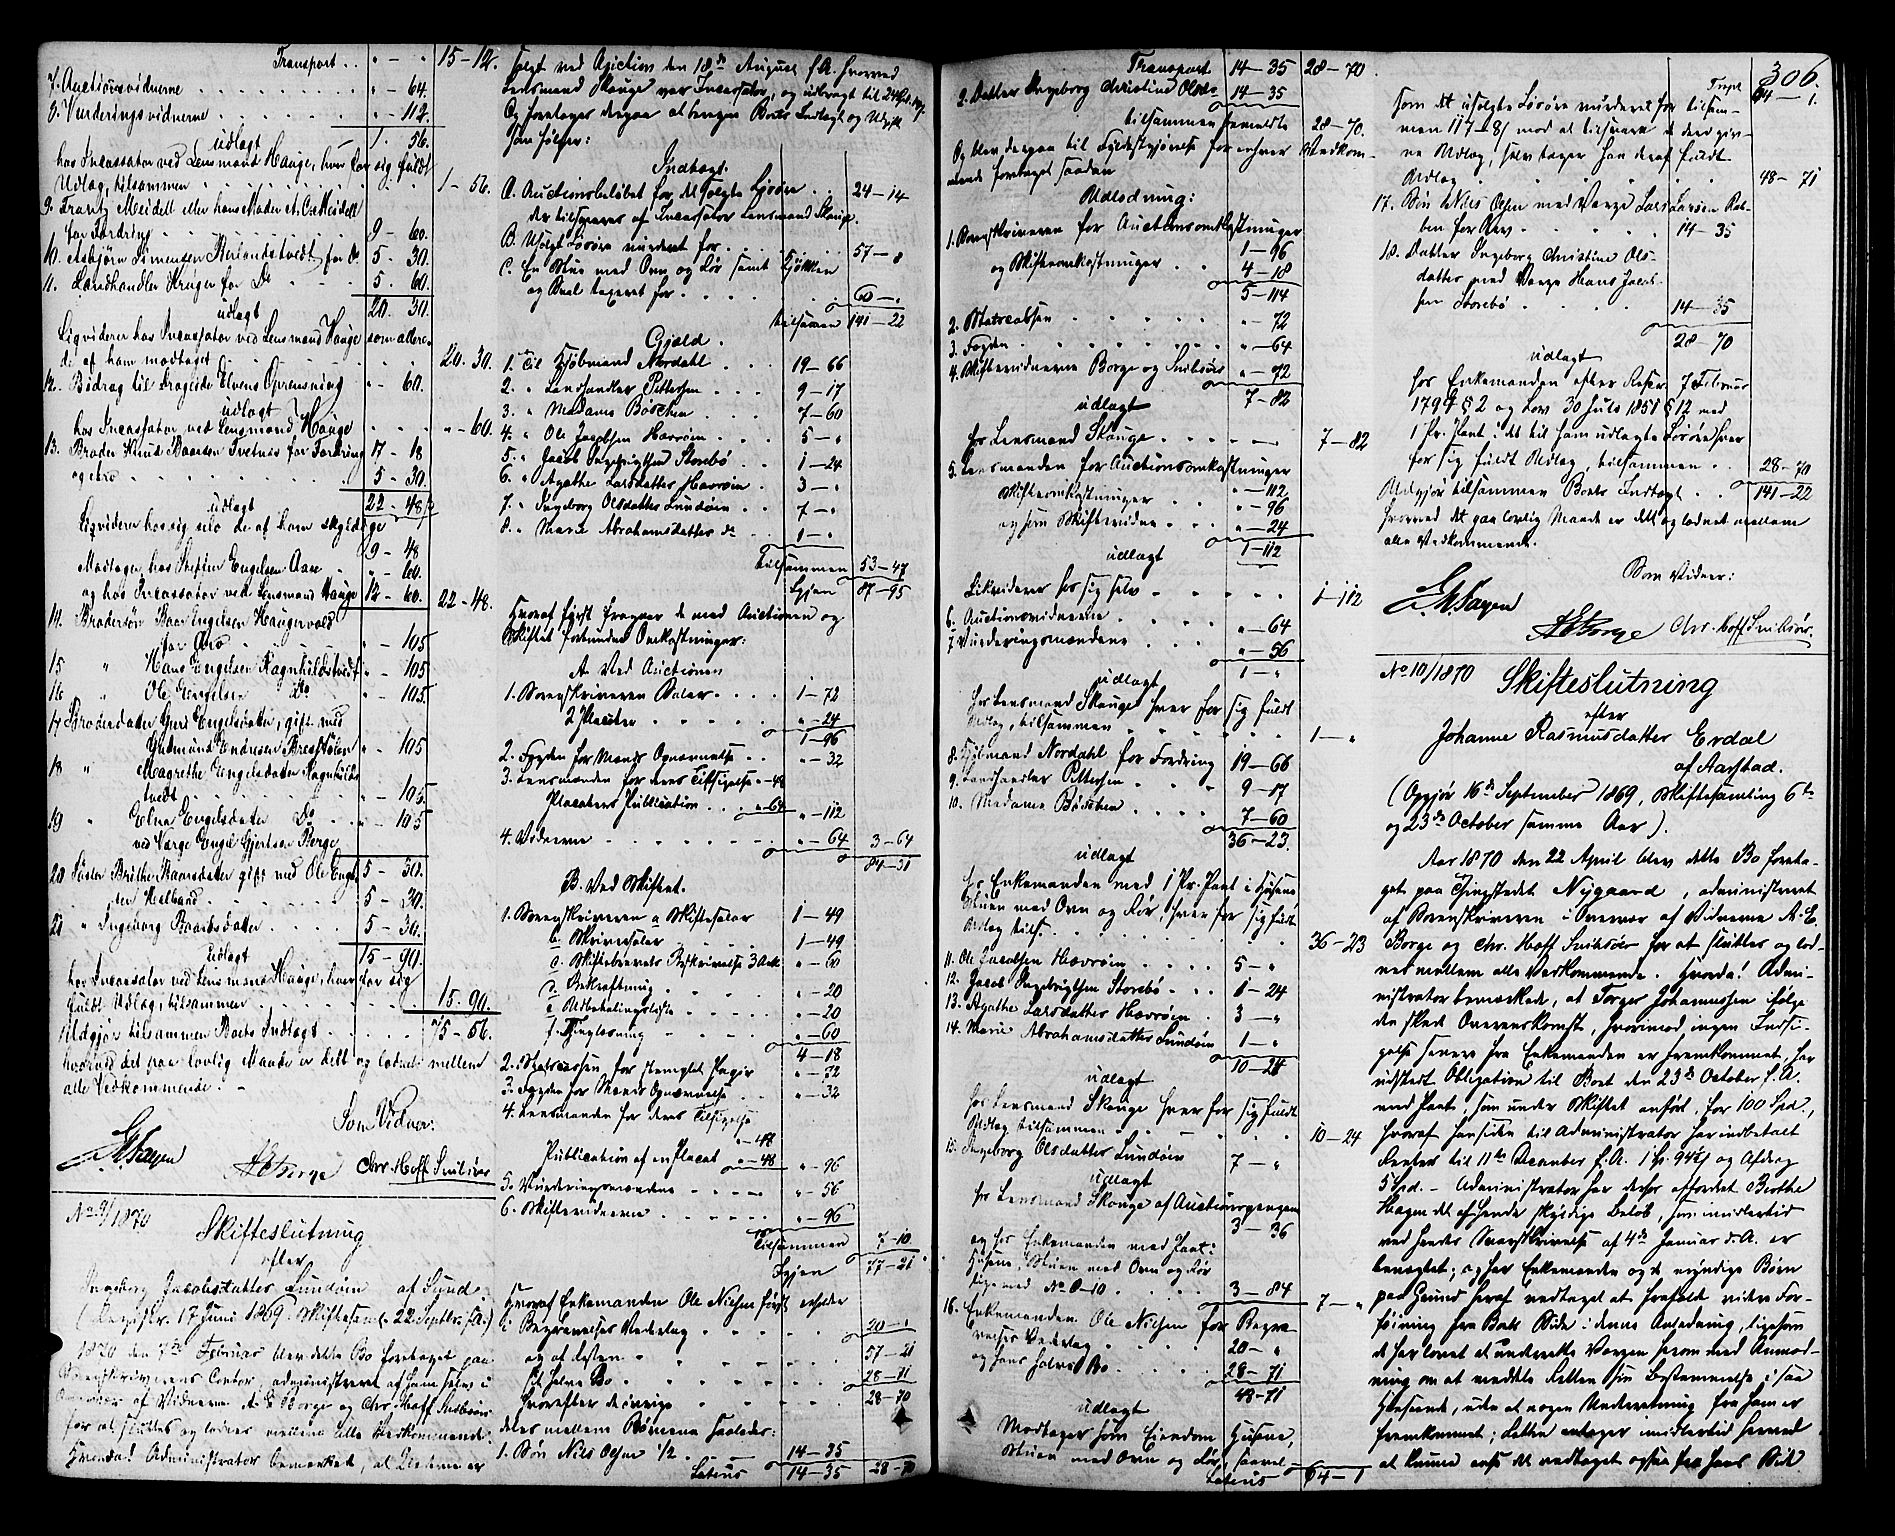 Transport . . " - " 15-12.
7. Auctionsvidnerne . . . . . . " - 64.
8. Vurderingsvidnerne . . . . . . " - 112.
udlagt 1. 56.
hos Incassator ved Lensmand Hauge, hver for sig fuldt
Udlag, tilsammen . . . . . . 1 - 56.
9. Frantz Meidell eller hans Moder M. C. Meidell
for Fordring . . . . 9 - 60.
10. Asbjörn Simensen Herlandstvedt for Do 5 - 30.
11. Landhandler Krüger for Do . . . 5 - 60.
udlagt 20. 30.
Liqviderer hos Incassator ved Lensmand Hauge som allere-
de af ham modtaget . . . . 20. 30.
12. Bidrag til Elvens Oprensning " - 60.
udlagt
hos Incassator ved Lensmand Hauge . . . " - 60.
13. Broder Knud Baardsen Tvetnes for Fordring 17 - 18
og Arv . . . . . 5 - 30.
udlagt 22 - 48
Liqviderer hos sig selv de af ham skyldige
9 - 48
Modtager hos Engelsen Aase . " - 60.
og hos Incassator ved Lensmand Hauge 12 - 60. 22 - 48.
14. Brodersön Baar Engelsen Haugervold
for Arv . . . " - 105
15 " Hans Engelsen Ragnhildstvedt " - 105
16 " Ole Engelsen Do " - 105.
17 Broderdatter Guri Engelsdatter, gift med
Gudmund Endresen " - 105
18 " Magrethe Engelsdatter Ragnhilds-
tvedt . . . . " - 105
19 " Elna Engelsdatter Do . . " - 105
ved Værge Engel Gjertsen Berge
20 Söster Brithe Baardsdatter gift med Ole Engel- 5 - 30.
sen Helland . . . . 5 - 30.
21 " Ingeborg Baardsdatter . . . 5 - 30.
udlagt 15 - 90.
hos Incassator ved Lensmand Hauge, hver for sig
fuldt Udlag, tilsammen . . . . 15. 90.
Udgjör tilsammen Boets Indtægt . . . . 75 - 56.
hvorved det paa lovlig Maade er delt og lodnet mellem
alle Vedkommende. -
Som Vidner:
E. M. Sagen
A E Borge Chr. Hoff Sniksöer
No 9/1870
Skifteslutning
efter
Ingeborg Jacobsdatter Lundöen af Sund.
(Registr. 17 Juni 1869. Skiftesaml. 22 Septbr. s. A.)
1870 den 7de Februar blev dette Bo foretaget paa
Sorenskriverens Contor, administreret af ham selv i
Overvær af Vidnerne A. E. Borge og Chr. Hoff Sniksöer
for at sluttes og lodnes mellem alle Vedkommende.
Hvorda! Administrator bemærket, at Lösöre er
solgt ved Auction den 18de August f. A. hvorved
Lensmand Skauge var Incassator, og udbragt til 24 Spd. 14 s.
Og foretages derpaa at beregne Boets Indtægt og Udgift
som fölger:
Indtægt.
A. Auctionsbelöbet for det solgte Lösöre . . 24 - 14
der tilsvares af Incassator Lensmand Skauge.
B. Usolgt Lösöre vurderet for . . . . 57 - 8
C. En Stue med Ovn og Rör samt Kjökken
og Bval taxeret for . . . . . . 60 - "
tilsammen 141 - 22
Gjæld.
1. Til Kjöbmand Nordahl . . . 19 - 66
2. " Landhandler Pettersen . . . 9 - 17
3. " Madame Böschen . . . 7 - 60
4. " Ole Jacobsen Havröen . . . 5 - "
5. " Jacob Ingebrigtsen Storebö . . 1 - 24
6. " Agathe Larsdatter Havröen . . 3 - "
7. " Ingeborg Olsdatter Lundöen . . 7 - "
8. " Marie Abrahamsdatter do . . 1 - "
Tilsammen 53 - 47
Igjen 87 - 95
Hvoraf först fragaar de med Auctionen og
Skiftet forbundne Omkostninger:
A Ved Auctionen
1. Sorenskriveren Salær . . . . 1 - 72
2 Placater . . . . . " - 24
1 - 96
2. Fogden for Mænds Opnævnelse . . " - 32
3. Lensmanden for deres Tilsigelse " - 48
Placatens Publication . . . " - 64 " - 112
4. Vidnerne . . . . . . . . " - 64 3 - 64
84 - 31
B. Ved Skiftet.
1. Sorenskriveren a Skiftesalær 1 - 49
b. Skriversalær . . . . 1 - 49
c. Skiftebrevets Beskrivelse 3 Ark " - 60
d. Bekræftning . . . . . " - 20
e. Udbetalingsliste . . . . " - 20
f. Thinglæsning . . . . " - 60
4 - 18
2. Statscassen for stemplet Papir " - 72
3. Fogden for Mænds Opnævnelse . . " - 32
4. Lensmanden for deres Tilsigelse
" - 48
Publication af en Placat " - 48 " - 96
5. Vurderingsmændene . . . . " - 56
6. Skiftevidnerne . . . . . " - 96
Tilsammen 7 - 10
Igjen 77 - 21
Hvoraf Enkemanden Ole Nielsen först erholder
i Begravelses Vederlag . . . . . 20 - "
og af Resten . . . . . . 57 - 21
sit halve Bo . . . . . . 28 - 71
hvorefter de övrige . . . . . 28 - 70
deles mellem Börnene saaledes:
1. Sön Nils Olsen 1/2 . . . . 14 - 35
Latus 14 - 35 28 - 70
Transport 14 - 35 28 - 70.
2. Datter Ingeborg Christine Olsdr 14 - 35
tilsammen fremeldte 28 - 70.
Og blev derpaa til Fyldestgjörelse for enhver Vedkom-
mende foretaget saadan
Udlodning:
1. Sorenskriveren for Auctionsomkostninger
1 - 96
og Skifteomkostninger . . . 4 - 18
5 - 114
2. Statscassen . . . . . " - 72
3. Fogden . . . . . . " - 64
4. Skiftevidnerne Borge og Sniksöer " - 72
udlagt 7 - 82
hos Lensmand Skauge . . . . . 7 - 82
5. Lensmanden for Auctionsomkostninger
" - 112
Skifteomkostninger . . . " - 96
og som Skiftevidne . . . " - 24
udlagt 1 - 112
Likviderer hos sig selv . . . . . 1 - 112
6. Auctionsvidnerne . . . . " - 64
7. Vurderingsmændene . . . " - 56
udlagt 1 - "
hos Lensmand Skauge hver for sig fuldt
Udlag, tilsammen . . . . . 1 - "
8. Kjöbmand Nordahl for Fordring 19 - 66
9. Landhandler Pettersen . . . 9 - 17
10. Madame Böschen . . . . 7 - 60
36 - 23.
udlagt
hos Enkemanden med 1 Pr. Pant i Husene
Stuen med Ovn og Rör, hver for sig fuldt
Udlag tils. . . . . . . . 36 - 23
11. Ole Jacobsen Havröen . . . 5 - "
12. Jacob Ingebrigtsen Storebö . . . 1 - 24
13. Agathe Larsdatter Havröen . . 3 - "
14. Marie Abrahamsdatter Lundöen 1 - "
10 - 24
udlagt
hos Lensmand Skauge hver for sig fuldt
Udlag tilsammen . . . . . . 10 - 24
15. Ingeborg Olsdatter Lundöen 7 - "
udlagt
hos Lensmand Skauge af Auctionspengene
3 - 36
og hos Enkemanden med Pant:
Husene, Stuen med Ovn og Rör
lige med No 8-10 . . . . 3 - 84
7 - "
16. Enkemanden Ole Nielsen for Begra-
velses Vederlag . . . . . 20 - "
og hans halve Bo . . . . 28 - 71
48 - 71
udlagt
Modtager som Eiendom Husene,
Stuen med Ovn og Rör, saavel
Latus 64 - 1
306.
Trspt 64 - 1.
som det usolgte Lösöre vurderet for tilsam-
men 117-8 mod at tilsvare de derpaa giv-
ne Udlæg, selv tager han deraf fuldt
Udlæg . . . . . . 48 - 71
17. Sön Nils Olsen med Værge Lars Larsen Rab-
ben for Arv . . . . . 14 - 35
18. Datter Ingeborg Christine Ols-
datter med Værge Hans Jacob-
sen Storebö . . . . 14 - 35
28 - 70
udlagt
hos Enkemanden efter Reser. 7 Februar
1794 § 2 og Lov 30 Juli 1851 § 12 med
1 Pr. Pant i det til ham udlagte Lösöre hver
for sig fuldt Udlæg, tilsammen . . 28 - 70
Udgjör tilsammen Boets Indtægt . . 141 - 22
hvorved det paa lovlig Maade er delt og lodnet mellem
alle Vedkommende.
Som Vidner:
E. M. Sagen
A E Borge Chr. Hoff Sniksöer.
No 10/1870 Skifteslutning
efter
Johanne Rasmusdatter Erdal
af Aarstad.
(Opgjör 16de September 1869, Skiftesamling 6te
og 23de October samme Aar).
Aar 1870 den 22 April blev dette Bo foreta-
get paa Thingstedet Nygaard, administreret
af Sorenskriveren i Overvær af Vidnerne A. E.
Borge og Chr. Hoff Sniksöer for at sluttes og lod-
nes mellem alle Vedkommende. Hvorda! Admi-
nistrator bemærkede, at Torger Johannessen ifölge
den skede Overenskomst, hvorimod ingen Indsi-
gelse senere fra Enkemanden er fremkommet, har
udstedt Obligation til Boet den 23de October f. A.
med Pant, som under Skiftet anfört, for 100 Spd.,
hvoraf han siden til Administrator har indbetalt
Renter til 11te December f. A. 1 Sp. 94 s og Afdrag
5 Spd. - Administrator har derhos affordret Birthe
Hagen det af hende skyldige Belöb, som imidlertid
ved hendes Svarskrivelse af 4de Januar d. A. er
benægtet; og har Enkemanden og de myndige Börn
paa Grund heraf vedtaget at frafalde videre For-
föining fra Boets Side i denne Anledning, ligesom
de har lovet at underrette Værgen herom med Anmod-
ning om at meddele Retten sin Bestemmelse i saa
Henseende, uden at nogen Underretning fra ham er
fremkommet; Retten antager imidlertid herved
at kunne anse det vedtaget ogsaa fra hans Side